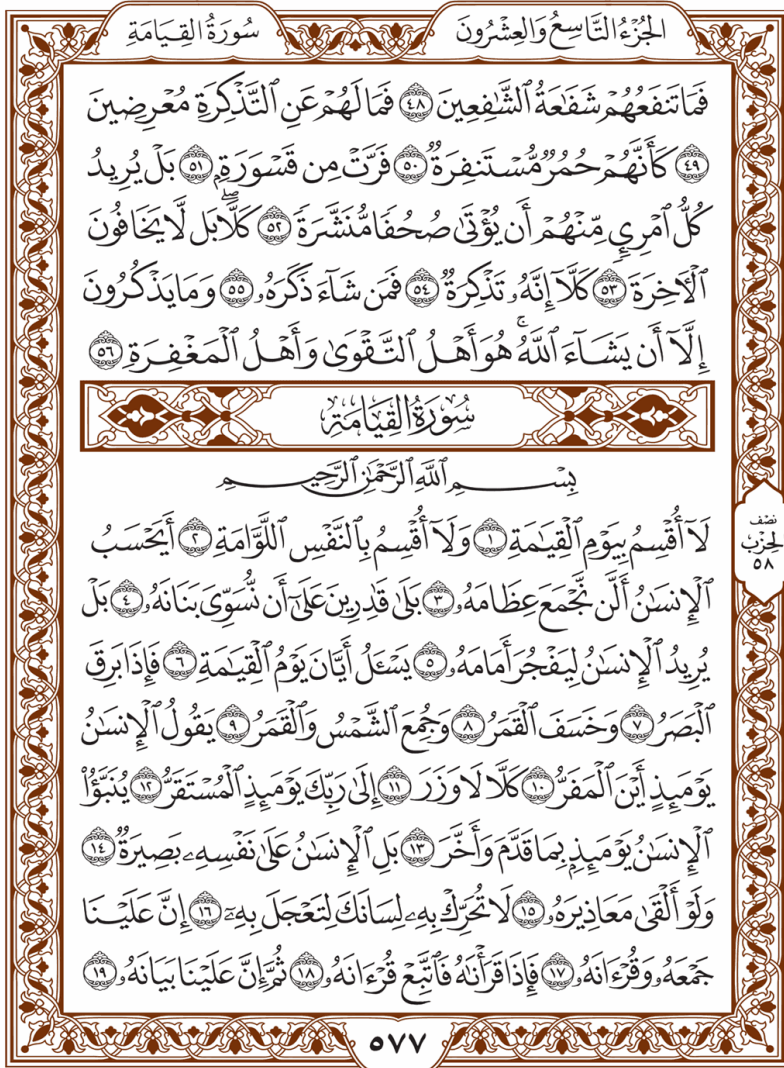 الجُزْءُ التَّاسِعُ وَالعِشْرُونَ
سُورَةُ القِيَامَةِ
فَمَا تَنفَعُهُمْ شَفَٰعَةُ ٱلشَّٰفِعِينَ ٤٨ فَمَا لَهُمْ عَنِ ٱلتَّذْكِرَةِ مُعْرِضِينَ
٤٩ كَأَنَّهُمْ حُمُرٌ مُّسْتَنفِرَةٌ ٥٠ فَرَّتْ مِن قَسْوَرَةٍۭ ٥١ بَلْ يُرِيدُ
كُلُّ ٱمْرِئٍ مِّنْهُمْ أَن يُؤْتَىٰ صُحُفًا مُّنَشَّرَةً ٥٢ كَلَّاۖ بَل لَّا يَخَافُونَ
ٱلْأَخِرَةَ ٥٣ كَلَّآ إِنَّهُۥ تَذْكِرَةٌ ٥٤ فَمَن شَآءَ ذَكَرَهُۥ ٥٥ وَمَا يَذْكُرُونَ
إِلَّآ أَن يَشَآءَ ٱللَّهُۚ هُوَ أَهْلُ ٱلتَّقْوَىٰ وَأَهْلُ ٱلْمَغْفِرَةِ ٥٦
سُورَةُ القِيَامَةِ
بِسْمِ ٱللَّهِ ٱلرَّحْمَٰنِ ٱلرَّحِيمِ
لَآ أُقْسِمُ بِيَوْمِ ٱلْقِيَٰمَةِ ١ وَلَآ أُقْسِمُ بِٱلنَّفْسِ ٱللَّوَّامَةِ ٢ أَيَحْسَبُ
ٱلْإِنسَٰنُ أَلَّن نَّجْمَعَ عِظَامَهُۥ ٣ بَلَىٰ قَٰدِرِينَ عَلَىٰٓ أَن نُّسَوِّىَ بَنَانَهُۥ ٤ بَلْ
يُرِيدُ ٱلْإِنسَٰنُ لِيَفْجُرَ أَمَامَهُۥ ٥ يَسْـَٔلُ أَيَّانَ يَوْمُ ٱلْقِيَٰمَةِ ٦ فَإِذَا بَرِقَ
ٱلْبَصَرُ ٧ وَخَسَفَ ٱلْقَمَرُ ٨ وَجُمِعَ ٱلشَّمْسُ وَٱلْقَمَرُ ٩ يَقُولُ ٱلْإِنسَٰنُ
يَوْمَئِذٍ أَيْنَ ٱلْمَفَرُّ ١٠ كَلَّا لَا وَزَرَ ١١ إِلَىٰ رَبِّكَ يَوْمَئِذٍ ٱلْمُسْتَقَرُّ ١٢ يُنَبَّؤُا۟
ٱلْإِنسَٰنُ يَوْمَئِذٍۭ بِمَا قَدَّمَ وَأَخَّرَ ١٣ بَلِ ٱلْإِنسَٰنُ عَلَىٰ نَفْسِهِۦ بَصِيرَةٌ ١٤
وَلَوْ أَلْقَىٰ مَعَاذِيرَهُۥ ١٥ لَا تُحَرِّكْ بِهِۦ لِسَانَكَ لِتَعْجَلَ بِهِۦٓ ١٦ إِنَّ عَلَيْنَا
جَمْعَهُۥ وَقُرْءَانَهُۥ ١٧ فَإِذَا قَرَأْنَٰهُ فَٱتَّبِعْ قُرْءَانَهُۥ ١٨ ثُمَّ إِنَّ عَلَيْنَا بَيَانَهُۥ ١٩
نصف
الحزب
٥٨
٥٧٧